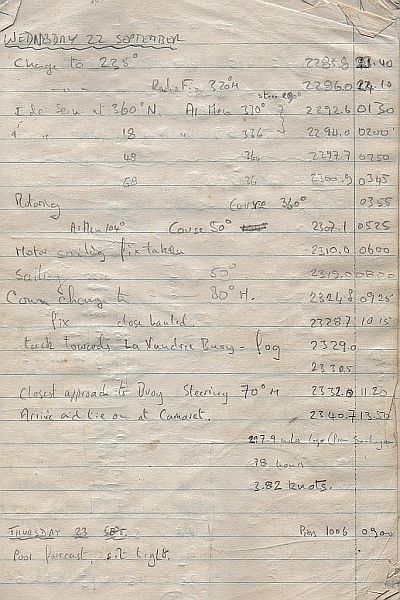 WEDNESDAY 22 SEPTEMBER
Change to 235° 2285.8 21.40
" " Radio Fix 320°M 2286.0 22.10
steer 290°
I de Sein at 360°N. Ar Men 330° 2292.6 0130
" " 18 " 336 2294.0 0200
48 360 2297.7 0250
68 36 2300.9 0345
Motoring Course 360° 0355
Ar Men 104° Course 50° 2307.1 0525
Motor sailing fix taken 2310.0 0600
Sailing 50° 2319.0 0800
Course change to 80° M. 2324.8 0925
fix close hauled. 2328.7 10.15
tack towards La Vandree Buoy - fog 2329.0
2330.5
Closest approach to Buoy Steering 70°M 2332.8 11.20
Arrive and tie on at Camaret. 2340.7 13.50
297.9 miles logo (from
78 hours
3.82 knots.
THURSDAY 23 SEPT. 1006 0900
Poor forecast, sit tight.